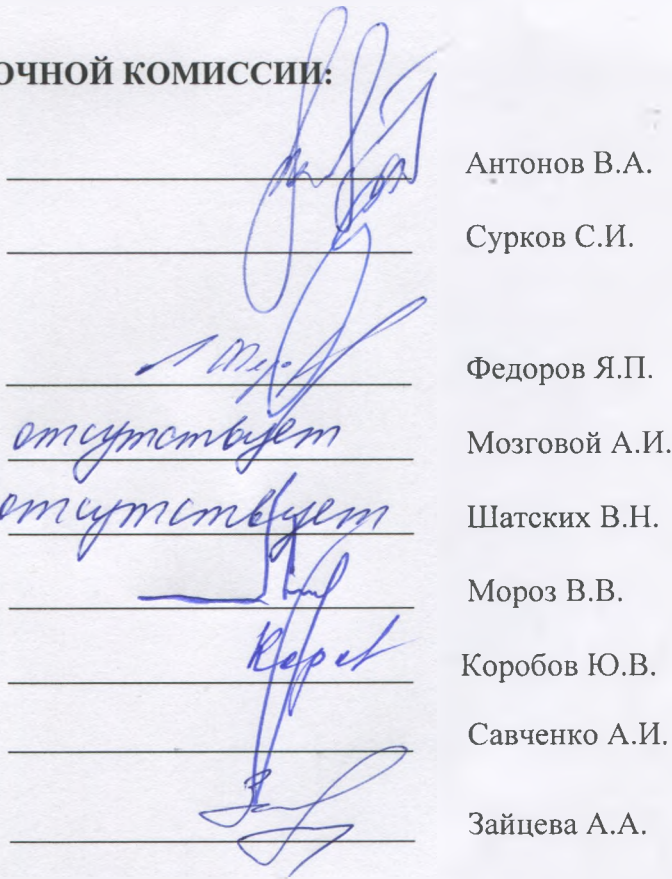 ОЧНОЙ КОМИССИИ:
Антонов В.А.
Сурков С.И.
Федоров Я.П.
отсутствует Мозговой А.И.
отсутствует Шатских В.Н.
Мороз В.В.
Коробов Ю.В.
Савченко А.И.
Зайцева А.А.